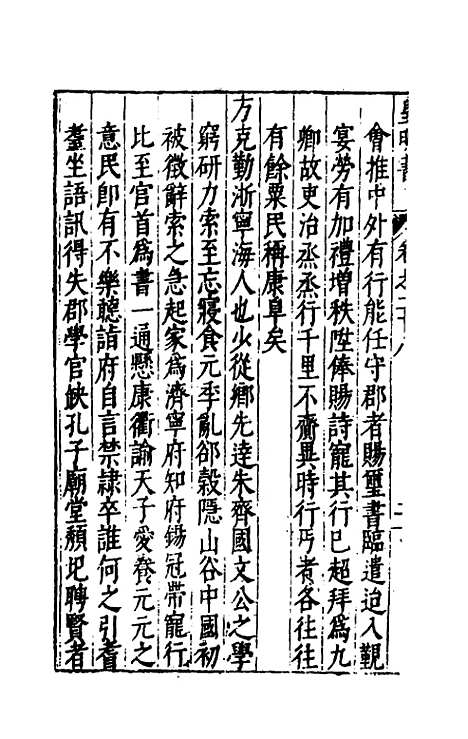 皇明書
卷之二十八
會推中外有行能任守郡者賜璽書臨遣迨入覲
宴勞有加禮增秩陞俸賜詩寵其行已超拜為九
卿故吏治烝烝行千里不齎異時行丐者各往往
有餘粟民稱康阜矣
方克勤浙寧海人也少從鄉先達朱齊國文公之學
窮研力索至忘寢食元季亂郤穀隱山谷中國初
被徵辭索之急起家為濟寧府知府錫冠帶寵行
比至官首為書一通懸康衢諭天子愛養元元之
意民即有不樂聽詣府自言禁隸卒誰何之引耆
耋坐語訊得失郡學官缺孔子廟堂頹圮聘賢者